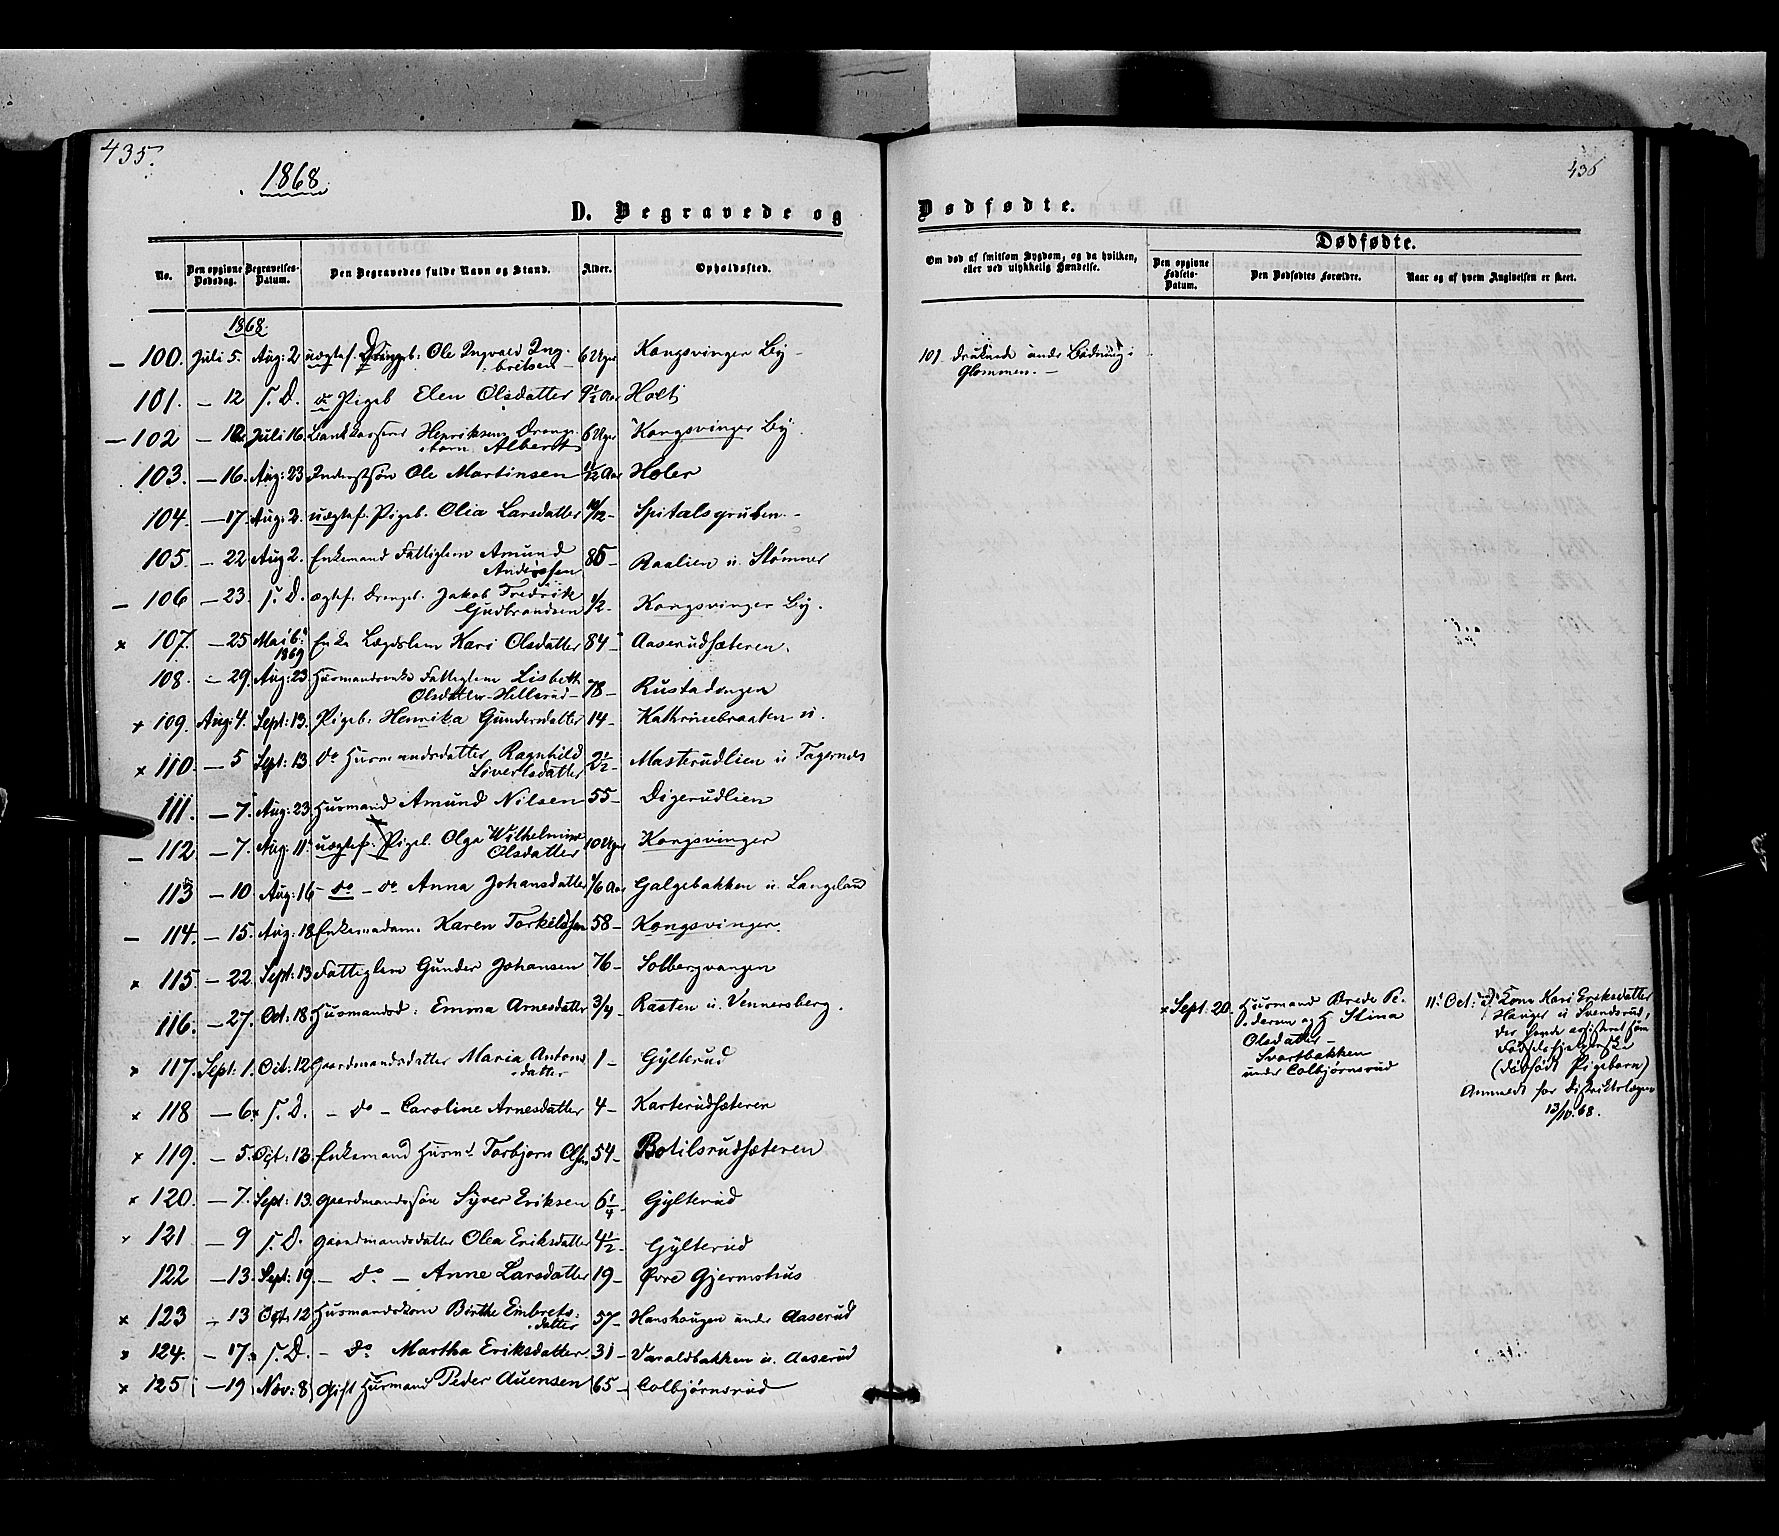 435.
1868.
D. Begravede og
No. Den opgivne Dødsdag. Begravelses-Datum. Den Begravedes fulde Navn og Stand. Alder. Opholdssted.
1868.
100. Juli 5. Aug: 2 uægtef. Drengeb: Ole Ingvald Ing-britsen 6 Uger Kongsvinger By
101. – 12 s. D. do Pigeb Elen Olsdatter 9½ Aar Holt
102 – 12 Juli 16 Henriksens Drenge-barn Albert 6 Uger Kongsvinger By.
103. – 16. Aug: 23 Inderstsøn Ole Martinsen Aar Holer
104. – 17. Aug: 2. uægtef. Pigeb. Olia Larsdatter 10/12 – Spitalsgruben. –
105. – 22 Aug 2. Enkemand Fattiglem Amund Andersen 85 – Raalien u. Stømner
106 – 23. s. D. ægtef. Drengeb. Jakob Fredrik Gudbrandsen ½ – Kongsvinger By.
107. – 25 Mai 6: 1869 Enke Lægdslem Kari Olsdatter 84 Aaserudsæteren.
108. – 29. Aug: 23 Husmandsenke Fattiglem Lisbeth Olsdatter Hellerud – 78 – Rustadengen
109. Aug: 4. Sept: 13. Pigeb: Henrika Gundersdatter 14 – Kathrinebraaten u.
110. – 5 Sept: 13 do Husmandsdatter Ragnhild Sivertsdatter 2½ – Masterudlien u Fagernes
111. – 7. Aug: 23 Husmand Amund Nilsen 55 – Digerudlien
112. – 7. Aug. 11 uægtef. Pigeb. Olga Wilhelmine Olsdatter 10 Uger Kongsvinger
113 – 10 Aug: 16 – do – do Anna Johansdatter 1/6 Aar Galgebakken u. Langeland
114. – 15. Aug: 18 Enkemadam. Karen Torkildsen 58 – Kongsvinger.
115 – 22. Sept: 13 Fattiglem Gunder Johansen 76 – Solbergvangen
116. – 27. Oct: 18 Husmandsd: Emma Arnesdatter 3/4 – Rasten u. Vennersberg.
117. Sept: 1. Oct: 12 Gaardmandsdatter Maria Antons-datter 1 – Gylterud
118 – 6 s. D. – do – Caroline Arnesdatter 4 – Karterudsæteren
119. – 5. Oct: 13 Enkemand Husmd. Torbjørn Olsen 54 – Botilsrudsæteren
120. – 7. Sept: 13. Gaardmandssøn Syver Eriksen 6¼ – Gylterud
121 – 9 s. D. Gaardmandsdatter Olea Eriksdatter 4½ – Gylterud
122 – 13. Sept: 19 – do – Anne Larsdatter 19 – Øvre Gjermshus
123 – 13 Oct: 12 Husmandskone Birthe Embrets-datter 57 – Hanshaugen under Aaserud
124. – 17. s. D. – do Martha Eriksdatter. 31 – Varaldbakken u. Aaserud
125 – 19 Nov: 8 gift Husmand Peder Auensen 65 – Colbjørnsrud
436
Dødfødte.
Om død af smitsom Sygdom, og da hvilken, eller ved ulykkelig Hændelse.
Dødfødte.
Den opgivne Fødsels-Datum. Den Dødfødtes Forældre. Naar og af hvem Angivelsen er skeet.
101 druknede under Badning i
Glommen. –
Sept: 20. Husmand Brede Pe-
dersen og H Stina
Olsdatter –
Svartbakken
under Colbjørnsrud
11. Oct: Kone Kari Eriksdatter
Hauger u Svendsrud,
der havde assisteret som
Fødselshjelperske
(dødfødt Pigebarn)
Anmeldt for Distriktslægen
13/10. 68.